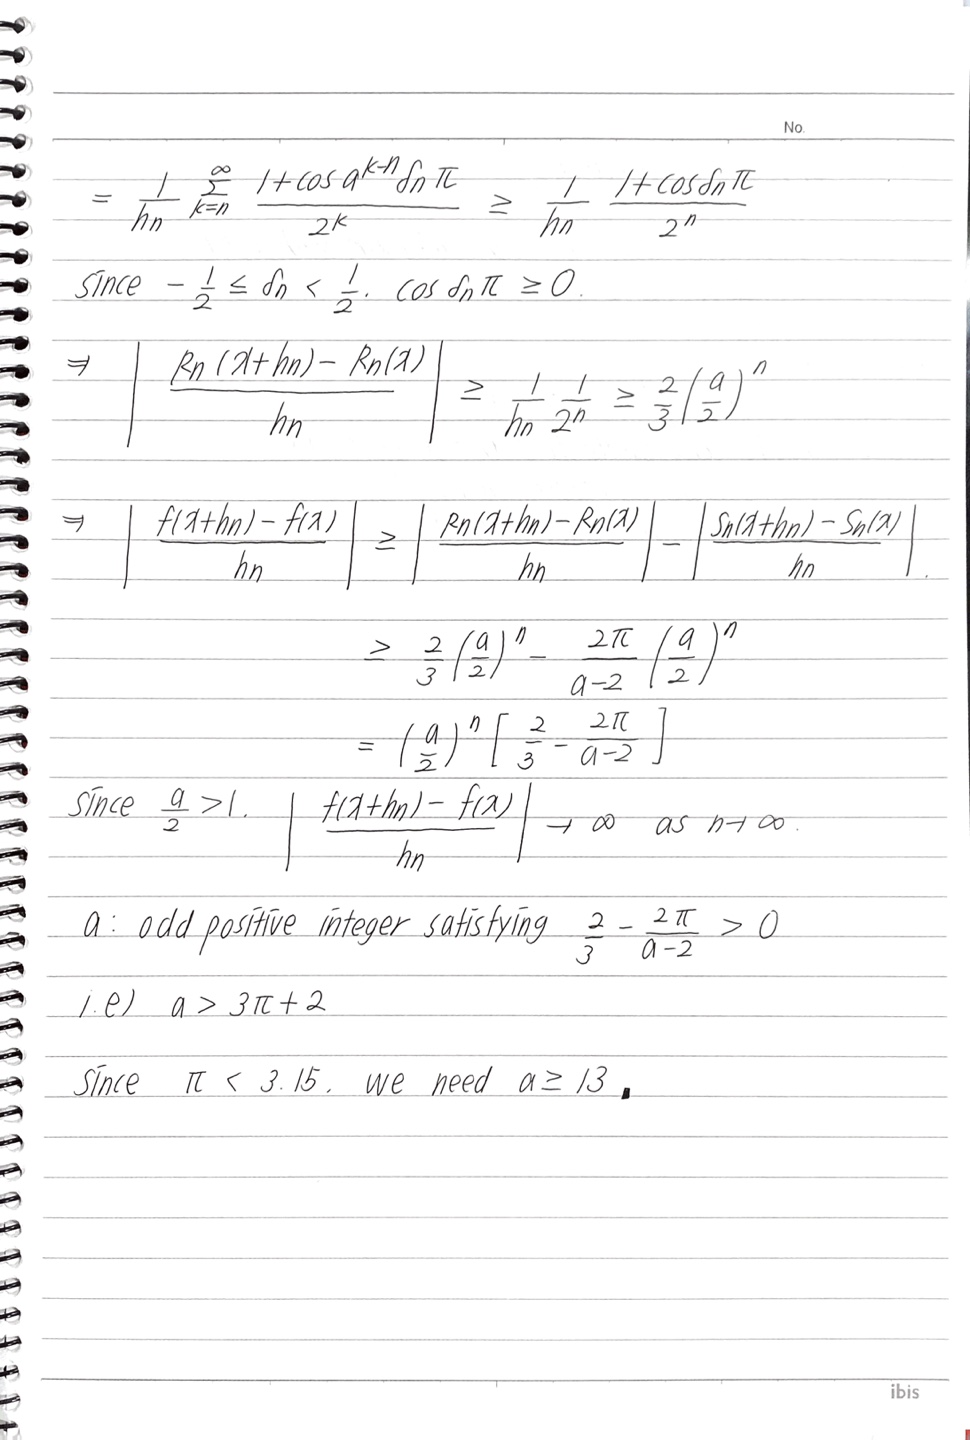 No.
= \frac{1}{h_n} \sum_{k=n}^{\infty} \frac{1+\cos a^{k-n} \delta_n \pi}{2^k} ≥ \frac{1}{h_n} \frac{1+\cos \delta_n \pi}{2^n}
since -\frac{1}{2} ≤ \delta_n < \frac{1}{2}. \cos \delta_n \pi ≥ 0.
⇒ \left| \frac{R_n(x+h_n) - R_n(x)}{h_n} \right| ≥ \frac{1}{h_n} \frac{1}{2^n} ≥ \frac{2}{3} \left(\frac{a}{2}\right)^n
⇒ \left| \frac{f(x+h_n) - f(x)}{h_n} \right| ≥ \left| \frac{R_n(x+h_n) - R_n(x)}{h_n} \right| - \left| \frac{S_n(x+h_n) - S_n(x)}{h_n} \right|.
≥ \frac{2}{3} \left(\frac{a}{2}\right)^n - \frac{2\pi}{a-2} \left(\frac{a}{2}\right)^n
= \left(\frac{a}{2}\right)^n \left[ \frac{2}{3} - \frac{2\pi}{a-2} \right]
since \frac{a}{2} > 1. \left| \frac{f(x+h_n) - f(x)}{h_n} \right| → ∞ as n→∞.
a: odd positive integer satisfying \frac{2}{3} - \frac{2\pi}{a-2} > 0
i.e) a > 3π + 2
since π < 3.15. we need a ≥ 13.
ibis